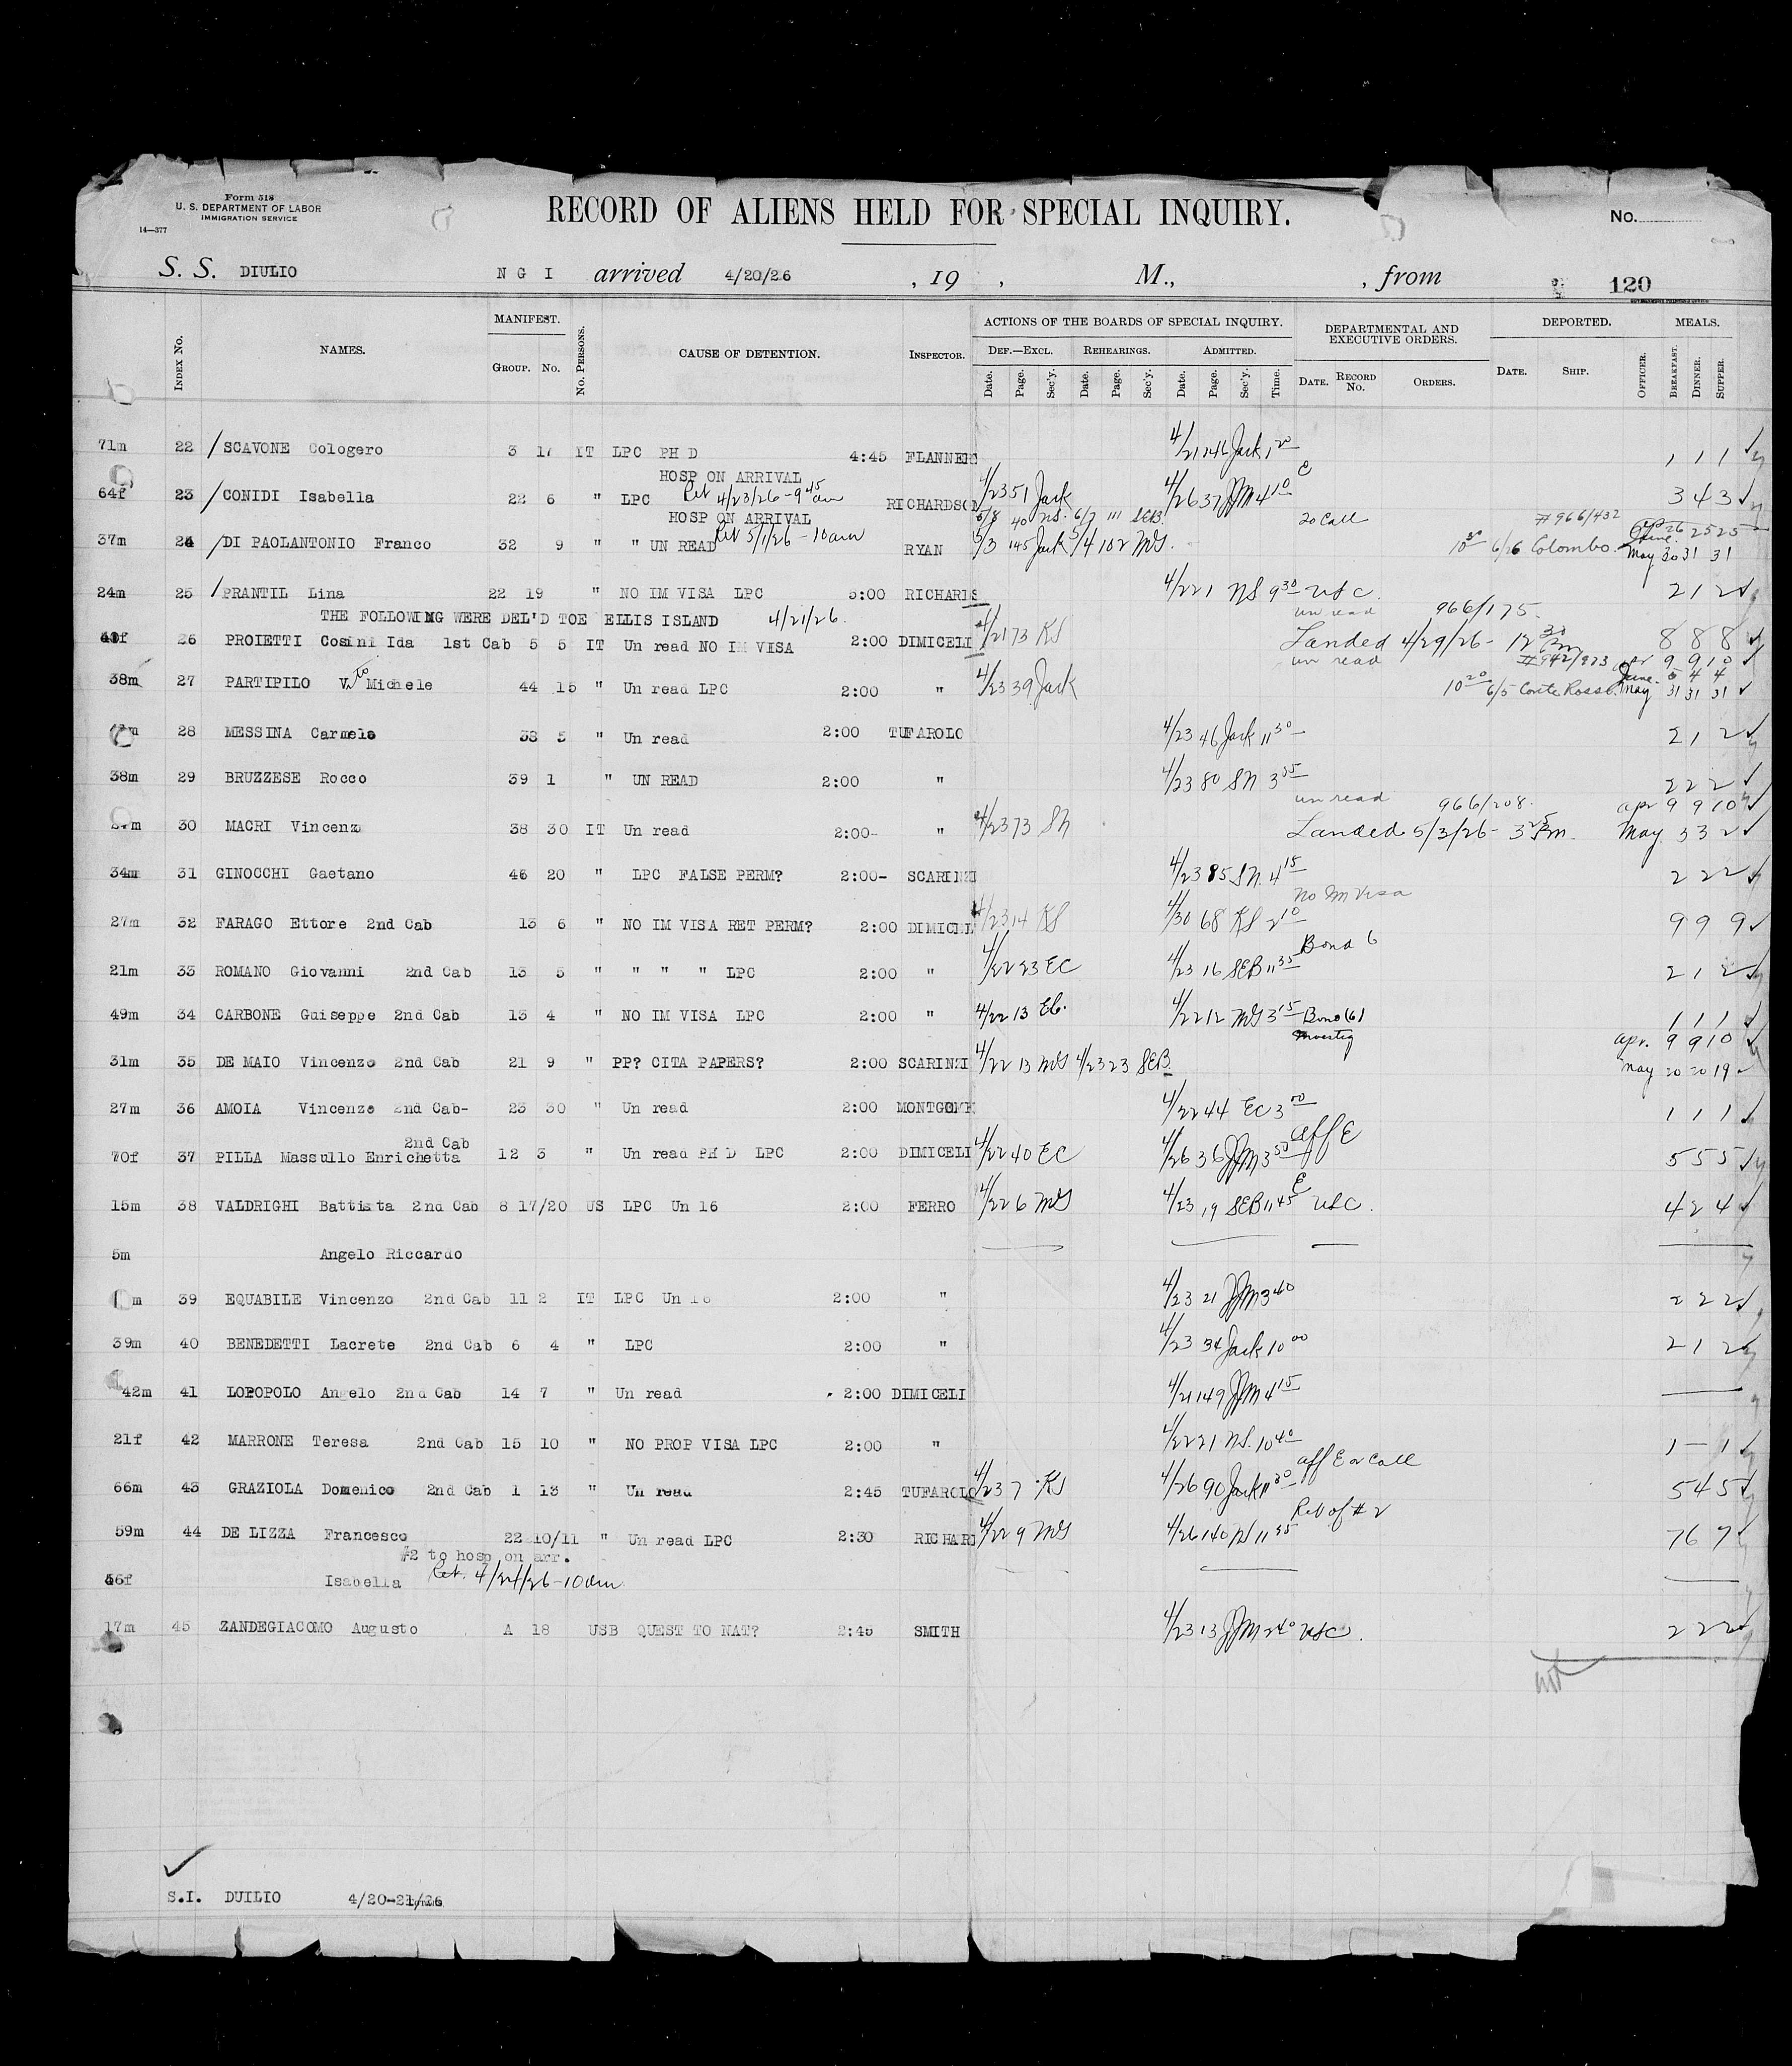 Form 518
U. S. DEPARTMENT OF LABOR
IMMIGRATION SERVICE
14—377
RECORD OF ALIENS HELD FOR SPECIAL INQUIRY.
No.
S. S. DIULIO N G I arrived 4/20/26 , 19 , M., , from 120
Index No. NAMES. MANIFEST. Group. No. No. Persons. CAUSE OF DETENTION. Inspector. ACTIONS OF THE BOARDS OF SPECIAL INQUIRY. DEPARTMENTAL AND EXECUTIVE ORDERS. DEPORTED. MEALS.
Def.—Excl. Rehearings. Admitted.
Date. Page. Sec'y. Date. Page. Sec'y. Date. Page. Sec'y. Time. Date. Record No. Orders. Date. Ship. Officer. Breakfast. Dinner. Supper.
71m 22 / SCAVONE Cologero 3 17 IT LPC PH D 4:45 FLANNERS 4/21 142 Jack 1 20 1 1 1 ✓
HOSP ON ARRIVAL
64f 23 / CONIDI Isabella 22 6 " LPC Ret 4/23/26 - 9 45 am RICHARDSON 4/23 51 Jack 4/26 37 JJM 4 10 E 3 4 3 ✓
HOSP ON ARRIVAL 5/8 40 NS. 6/7 111 SEB 20 Call #966/432 26 25 25
37m 24 / DI PAOLANTONIO Franco 32 9 " " UN READ Ret 5/1/26 - 10 am RYAN 5/3 145 Jack 5/4 102 MS. 10 30 6/26 Colombo. May 30 31 31
24m 25 / PRANTIL Lina 22 19 " NO IM VISA LPC 5:00 RICHARDS 4/22 1 NS 9 30 USC. 2 1 2 ✓
THE FOLLOWING WERE DEL'D TOE ELLIS ISLAND 4/21/26. un read 966/175.
26 PROIETTI Cosini Ida 1st Cab 5 5 IT Un read NO IM VISA 2:00 DIMICELI 4/21 73 KS Landed 4/29/26 - 12 30 Pm 8 8 8 ✓
un read #942/973 apr 9 9 10 ✓
June. 5 4 4
38m 27 PARTIPILO V. Michele 44 15 " Un read LPC 2:00 " 4/23 39 Jack 10 20 6/5 Conte Rosso. May 31 31 31 ✓
28 MESSINA Carmelo 38 5 " Un read 2:00 TUFAROLO 4/23 46 Jack 11 30 2 1 2 ✓
38m 29 BRUZZESE Rocco 39 1 " UN READ 2:00 " 4/23 80 SN 3 55 2 2 2 ✓
un read 966/208. apr 9 9 10 ✓
30 MACRI Vincenz 38 30 IT Un read 2:00- " 4/23 73 SN Landed 5/3/26 - 3 25 Pm. May. 3 3 2 ✓
34m 31 GINOCCHI Gaetano 46 20 " LPC FALSE PERM? 2:00- SCARINZI 4/23 85 SN. 4 15 2 2 2 ✓
No Im Visa
27m 32 FARAGO Ettore 2nd Cab 13 6 " NO IM VISA RET PERM? 2:00 DIMICEL 4/23 14 KS 4/30 68 KS 2 10 9 9 9 ✓
Bond 6
21m 33 ROMANO Giovanni 2nd Cab 13 5 " " " " LPC 2:00 " 4/22 23 EC 4/23 16 SEB 11 35 2 1 2 ✓
49m 34 CARBONE Guiseppe 2nd Cab 13 4 " NO IM VISA LPC 2:00 " 4/22 13 EC. 4/22 12 MS 3 15 Bond (6) 1 1 1 ✓
Investig apr. 9 9 10 ✓
31m 35 DE MAIO Vincenzo 2nd Cab 21 9 " PP? CITA PAPERS? 2:00 SCARINZI 4/22 13 MS 4/23 23 SEB May 20 20 19 ✓
27m 36 AMOIA Vincenzo 2nd Cab- 23 30 " Un read 2:00 MONTGOMR 4/22 44 EC 3 00 1 1 1 ✓
2nd Cab Aff E
70f 37 PILLA Massullo Enrichetta 12 3 " Un read PH D LPC 2:00 DIMICELI 4/22 40 EC 4/26 36 JJM 3 50 5 5 5 ✓
15m 38 VALDRIGHI Battista 2nd Cab 8 17/20 US LPC Un 16 2:00 FERRO 4/22 6 MS 4/23 19 SEB 11 45 E USC. 4 2 4 ✓
5m Angelo Riccardo
m 39 EQUABILE Vincenzo 2nd Cab 11 2 IT LPC Un 16 2:00 " 4/23 21 JJM 3 40 2 2 2 ✓
39m 40 BENEDETTI Lacrete 2nd Cab 6 4 " LPC 2:00 " 4/23 34 Jack 10 00 2 1 2 ✓
42m 41 LOPOPOLO Angelo 2nd Cab 14 7 " Un read 2:00 DIMICELI 4/21 149 JJM 4 15
21f 42 MARRONE Teresa 2nd Cab 15 10 " NO PROP VISA LPC 2:00 " 4/22 21 NS. 10 40 1 — 1 ✓
aff E or Call
66m 43 GRAZIOLA Domenico 2nd Cab 1 13 " Un read 2:45 TUFAROLO 4/23 7 KS 4/26 90 Jack 11 30 5 4 5 ✓
Ret of #2
59m 44 DE LIZZA Francesco 22 10/11 " Un read LPC 2:30 RICHAR 4/22 9 MS 4/26 140 11 55 7 6 7 ✓
#2 to hosp on arr.
56f Isabella Ret. 4/24/26 - 10 am.
17m 45 ZANDEGIACOMO Augusto A 18 USB QUEST TO NAT? 2:45 SMITH 4/23 13 JJM 2 40 USC. 2 2 2 ✓
✓
S.I. DUILIO 4/20-21/26